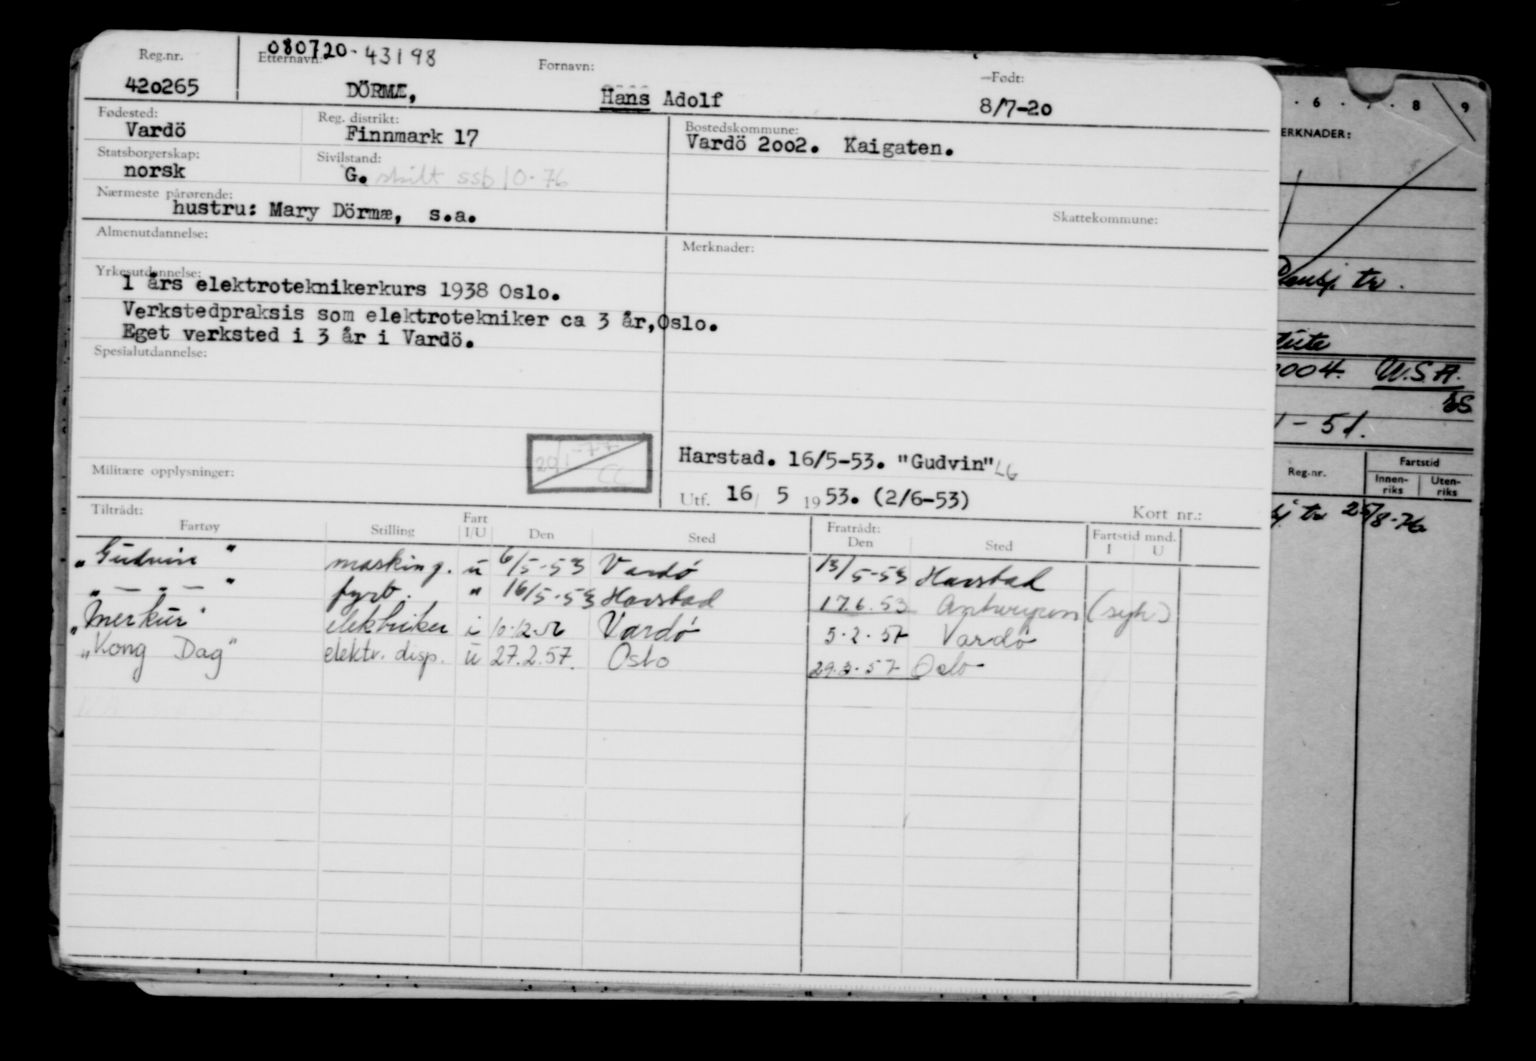 080720-43198
Reg.nr. Etternavn: Fornavn: Født:
420265 DÖRMÆ, Hans Adolf 8/7-20
Fødested: Reg. distrikt: Bostedskommune:
Vardö Finnmark 17 Vardö 2002. Kaigaten.
Statsborgerskap: Sivilstand:
norsk G. skilt ssb 10-76
Nærmeste pårørende: Skattekommune:
hustru: Mary Dörmæ, s.a.
Almenutdannelse: Merknader:
Yrkesutdannelse:
1 års elektroteknikerkurs 1938 Oslo.
Verkstedpraksis som elektrotekniker ca 3 år, Oslo.
Eget verksted i 3 år i Vardö.
Spesialutdannelse:
20/1-77
Harstad. 16/5-53. "Gudvin" LG
Militære opplysninger:
Utf. 16/ 5 1953. (2/6-53)
Kort nr.:
Tiltrådt: Fratrådt: Fartstid mnd.
Fartøy Stilling Fart I/U Den Sted Den Sted I U
"Gudvin" masking. u 6/5-53 Vardö 13/5-53 Harstad
" — " — " fyrb. " 16/5-53 Harstad 17.6.53 Antwerpen (syk)
"Merkur" elektriker i 10-12-56 Vardö 5-2-57 Vardö
"Kong Dag" elektr. disp. u 27.2.57. Oslo 29.3.57 Oslo
6 7 8 9
ERKNADER:
tr.
004. U.S.A.
- 51.
Reg.nr. Fartstid
Innenriks Utenriks
tr 25/8-76